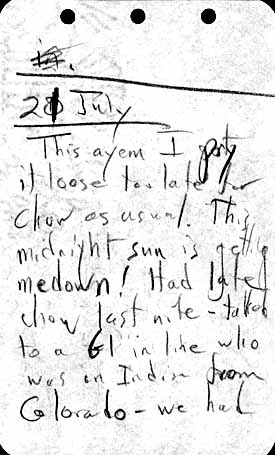 in.
21 July
This ayem I
it loose too late for
chow as usual. This
midnight sun is getting
me down! Had late
chow last nite - talked
to a GI in line who
was an Indian from
Colorado - we had